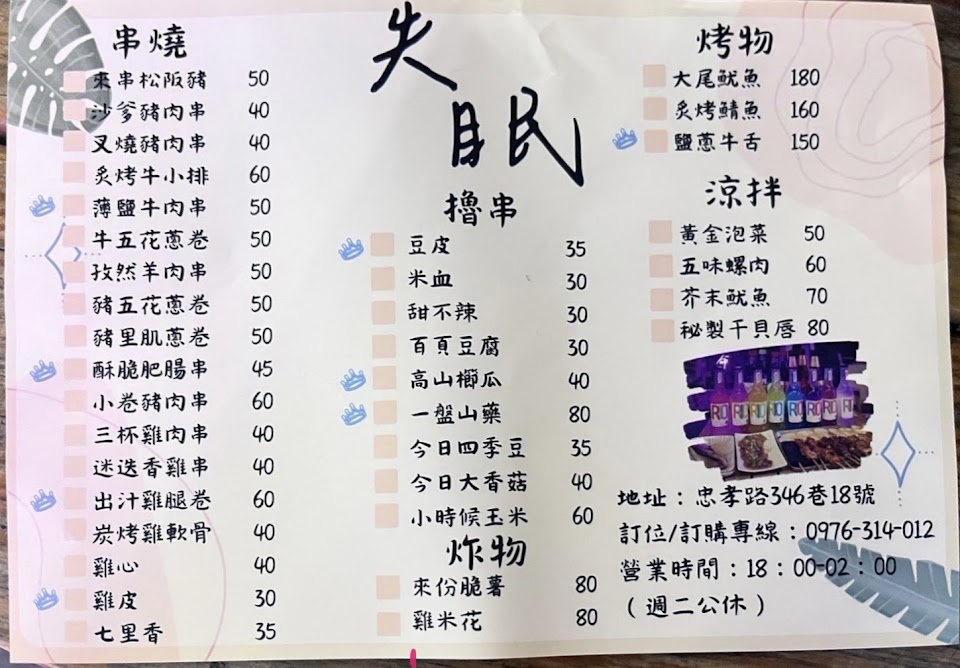 失眠
串燒
來串松阪豬 50
沙爹豬肉串 40
叉燒豬肉串 40
炙烤牛小排 60
薄鹽牛肉串 50
牛五花蔥卷 50
孜然羊肉串 50
豬五花蔥卷 50
豬里肌蔥卷 50
酥脆肥腸串 45
小卷豬肉串 60
三杯雞肉串 40
迷迭香雞串 40
出汁雞腿卷 60
炭烤雞軟骨 40
雞心 40
雞皮 30
七里香 35
擼串
豆皮 35
米血 30
甜不辣 30
百頁豆腐 30
高山櫛瓜 40
一盤山藥 80
今日四季豆 35
今日大香菇 40
小時候玉米 60
炸物
來份脆薯 80
雞米花 80
烤物
大尾魷魚 180
炙烤鯖魚 160
鹽蔥牛舌 150
涼拌
黃金泡菜 50
五味螺肉 60
芥末魷魚 70
秘製干貝唇 80
RIO RIO RIO RIO RIO RIO RIO RIO
地址：忠孝路346巷18號
訂位/訂購專線：0976-314-012
營業時間：18：00-02：00
（週二公休）